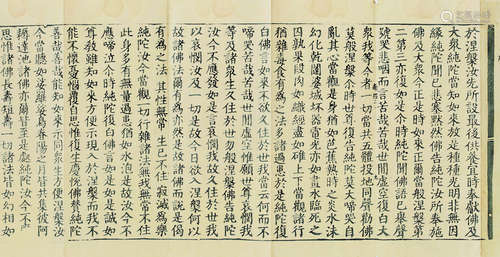 於涅槃汝先所設最後供養宜時奉獻佛及
大衆純陀當知如來放是種種光明非無因
緣純陀聞已情塞默然佛告純陀汝所奉施
佛及大衆今正是時如來正爾當般涅槃第
二第三亦復如是尒時純陀聞佛語已舉聲
號哭悲咽而言苦哉苦哉世間虛空復白大
衆我等今者一切當共五體投地同聲勸佛
莫般涅槃尒時世尊復告純陀莫大啼哭自
亂其心當觀是身猶如芭蕉熱時之炎水沫
幻化乾闥婆城坏器電光亦如畫水臨死之
囚熟果段肉如織經盡如碓上下當觀諸行
猶雜毒食有為之法多諸過患於是純陀復
白佛言如來不欲久住於世我當云何而不
啼哭苦哉苦哉世間虛空惟願世尊哀愍我
等及諸衆生久住於世勿般涅槃佛告純陀
汝今不應發如是言哀愍我故久住於世我
以哀愍汝及一切是故今日欲入涅槃何以
故諸佛法爾有為亦然是故諸佛而說是偈
有為之法 其性無常 生已不住 寂滅為樂
純陀汝今當觀一切行雜諸法無我無常不住
此身多有無量過患猶如水泡是故汝今不
應啼泣尒時純陀復白佛言如是如是誠如
尊教雖知如來方便示現入於涅槃而我不
能不懷憂惱覆自思惟復生慶悅佛讚純陀
善哉善哉能知如來示同衆生方便涅槃汝
今當聽如娑羅娑鳥春陽之月皆共集彼阿
耨達池諸佛亦爾皆至是處純陀汝今不應
思惟諸佛長壽短壽一切諸法皆如幻相如